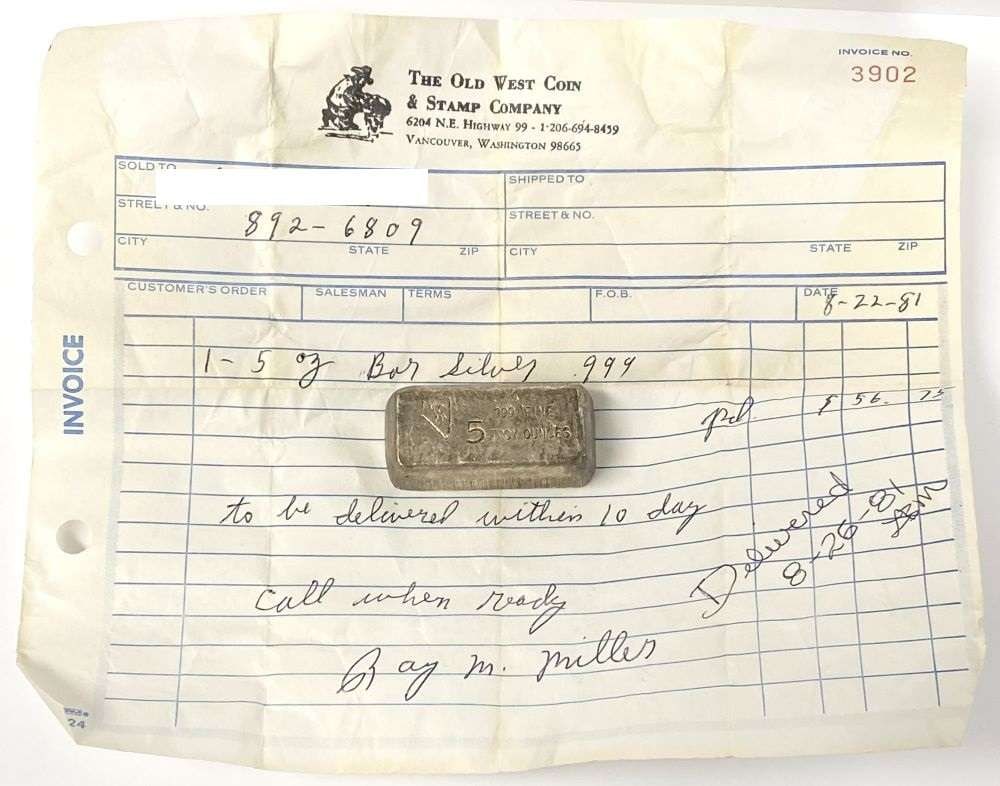 INVOICE NO.
3902
THE OLD WEST COIN
& STAMP COMPANY
6204 N.E. HIGHWAY 99 - 1-206-694-8459
VANCOUVER, WASHINGTON 98665
SOLD TO
SHIPPED TO
STREET & NO.
STREET & NO.
892-6809
CITY STATE ZIP
CITY STATE ZIP
CUSTOMER'S ORDER SALESMAN TERMS F.O.B. DATE
8-22-81
INVOICE
1 - 5 oz Bar Silver .999
pd $ 56. 75
999 FINE
5 TROY OUNCES
to be delivered within 10 day
Delivered
8-26-81
call when ready
Ray M. Miller
24